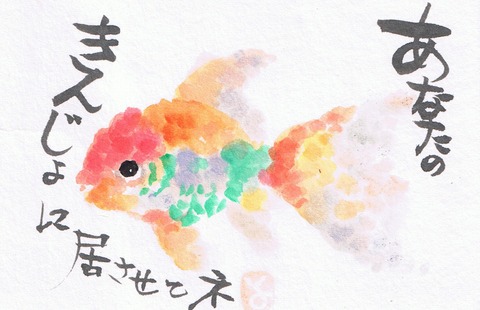 あなたの
きんじょに居させてネ